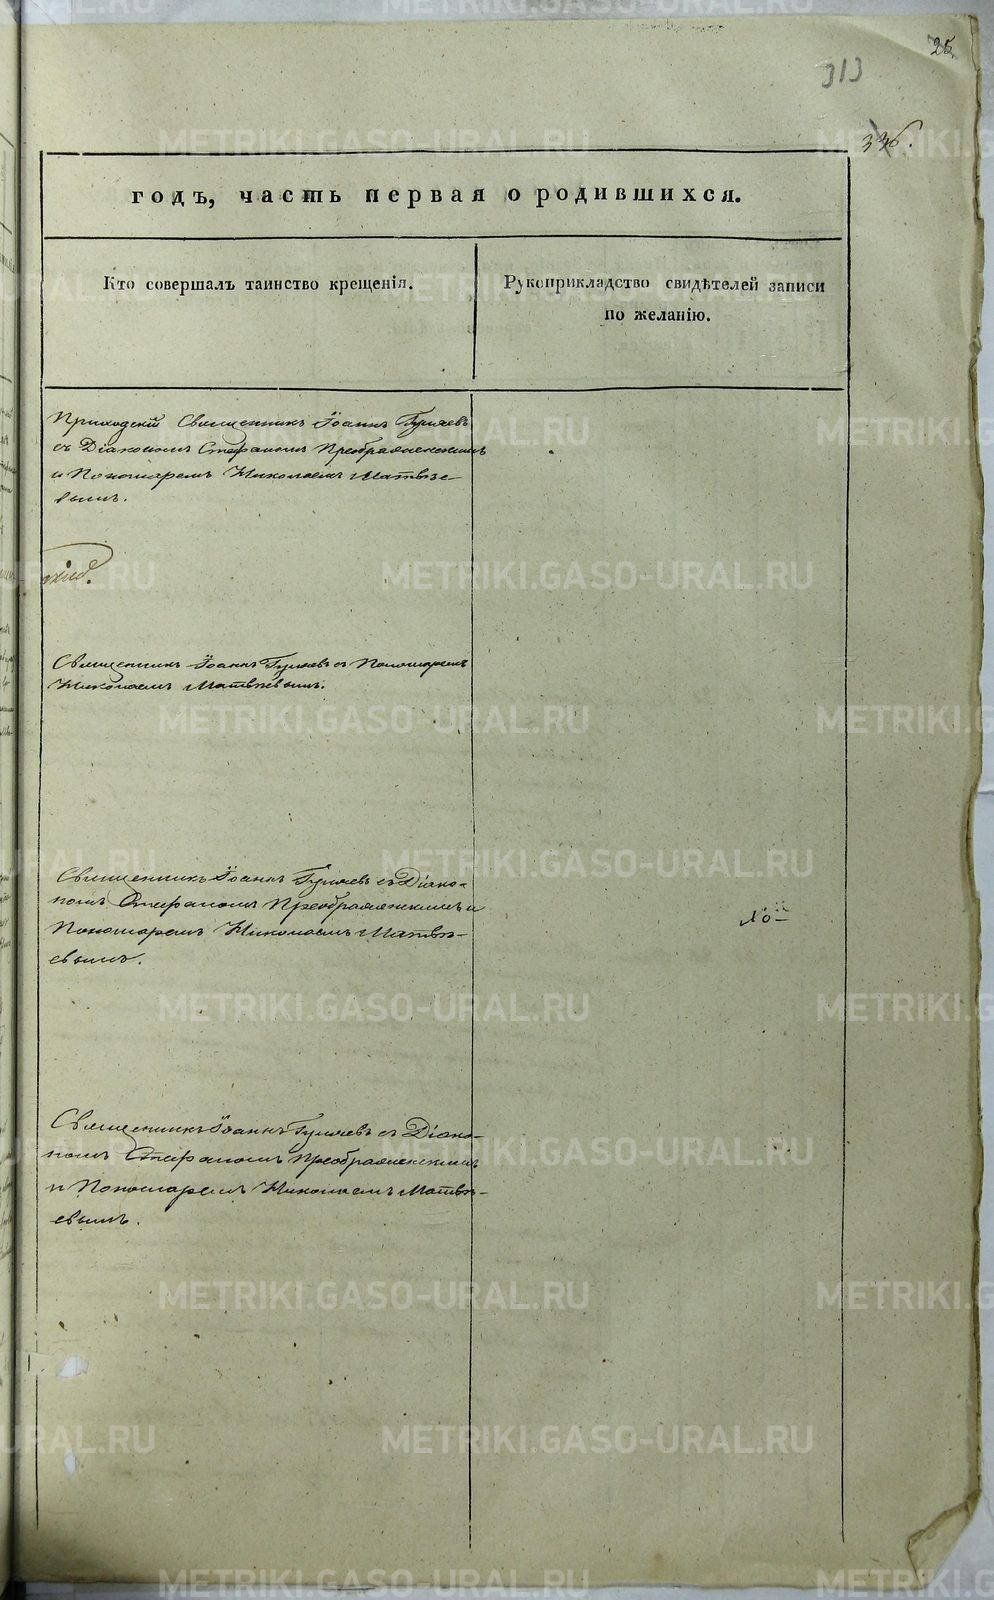 25
313
336.
годъ, часть первая о родившихся.
Кто совершалъ таинство крещенія.
Рукоприкладство свидѣтелей записи
по желанію.
Приходскій Священникъ Іоаннъ Гуляевъ
съ Діакономъ Стефаномъ Преображенскимъ
и Пономаремъ Николаемъ Матвѣе-
вымъ.
Священникъ Іоаннъ Гуляевъ съ Пономаремъ
Николаемъ Матвѣевымъ.
Священникъ Іоаннъ Гуляевъ съ Діако-
номъ Стефаномъ Преображенскимъ и
Пономаремъ Николаемъ Матвѣ-
евымъ.
Священникъ Іоаннъ Гуляевъ съ Діако-
номъ Стефаномъ Преображенскимъ
и Пономаремъ Николаемъ Матвѣ-
евымъ.
METRIKI.GASO-URAL.RU